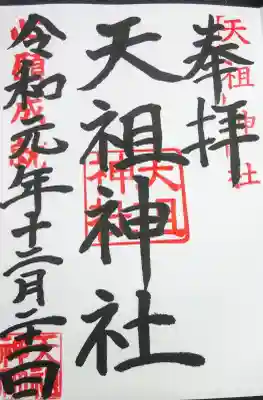 奉拝
天祖神社
天祖神社
天祖神社
令和元年十二月二十四
心願成就